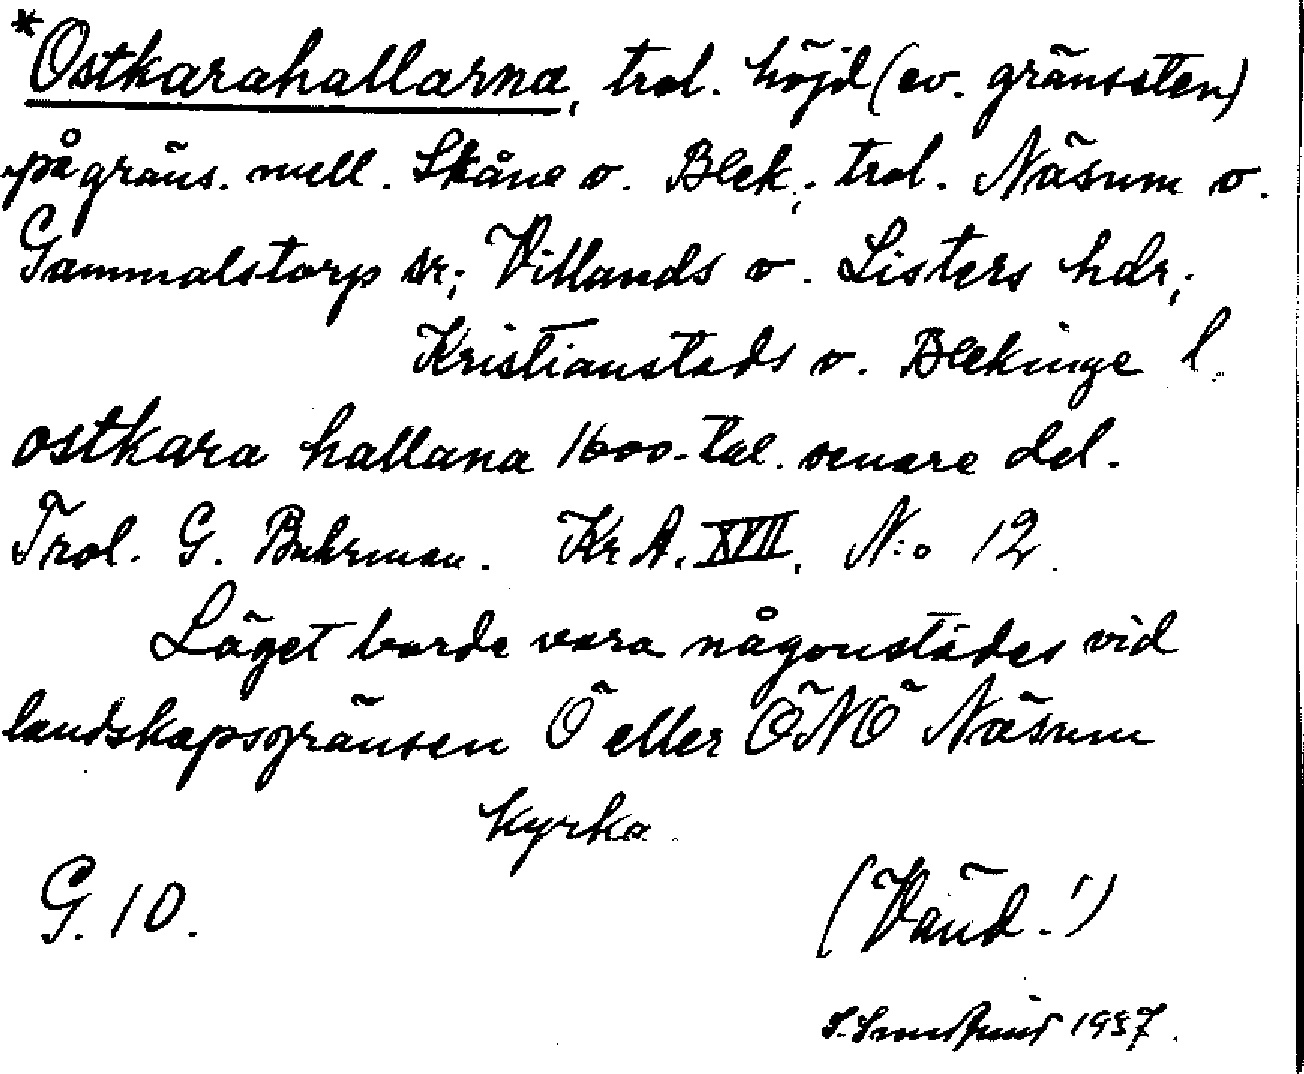 *Ostkarahallarna, trol. höjd (ev. gränssten)
på gräns. mell. Skåne o. Blek.; trol. Näsum o.
Gammalstorp sr; Villands o. Listers hdr;
Kristianstads o. Blekinge l.
ostkara hallana 1600-tal. senare del.
Trol. G. Buhrman. Kr A. XVII. N:o 12.
Läget borde vara någonstädes vid
landskapsgränsen Ö eller ÖNÖ Näsum
kyrka.
G. 10.
(Vänd!)
1937.